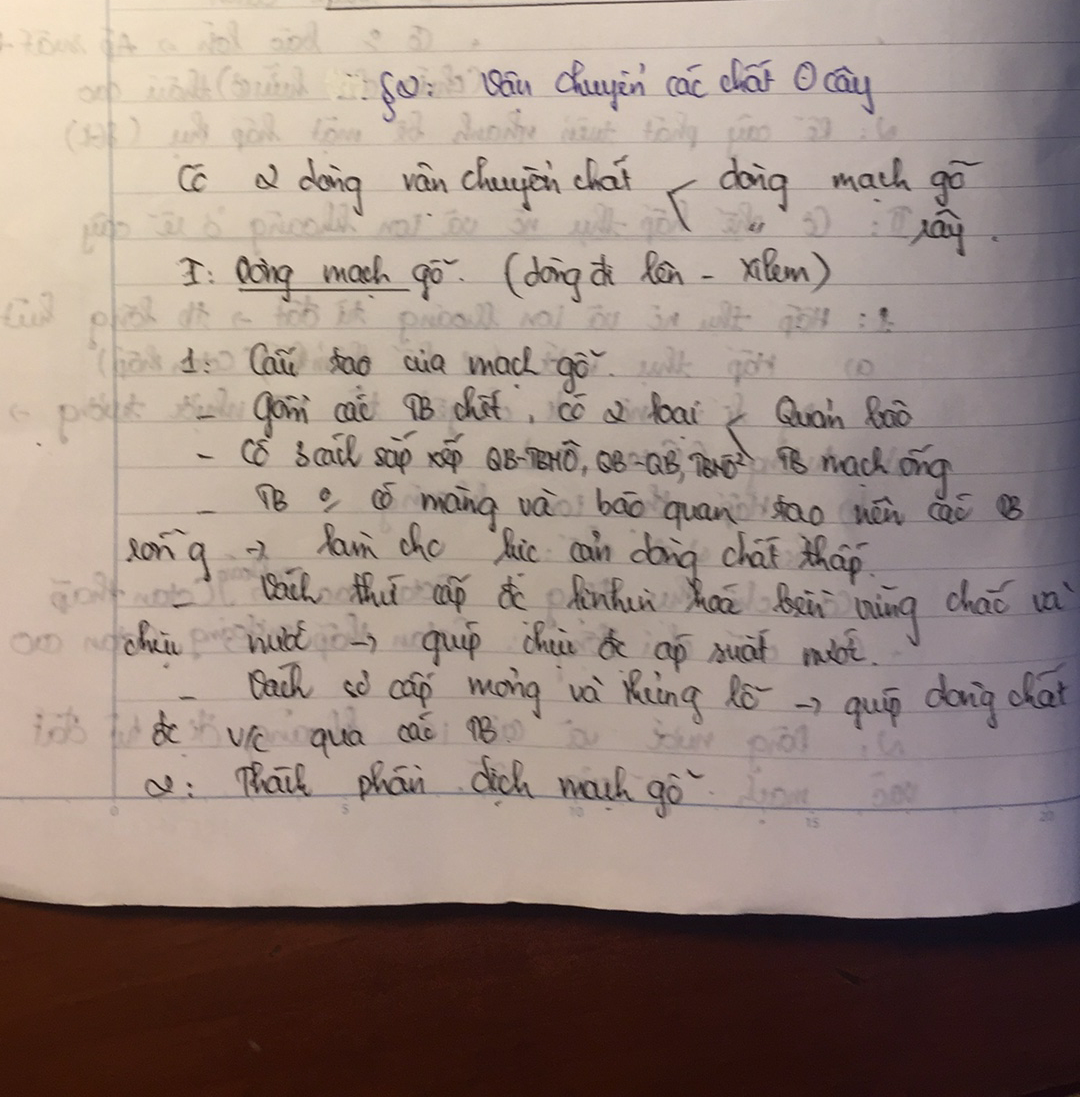 §2: Vận chuyển các chất ở cây
Có 2 dòng vận chuyển chất < dòng mạch gỗ
" rây.
I: Dòng mạch gỗ. (dòng đi lên - xilem)
1: Cấu tạo của mạch gỗ.
- Gồm các TB chết, có 2 loại < Quản bào
- Có 3 cách sắp xếp QB-TBMÔ, QB-QB, TBMÔ² TB mạch ống
- TB o có màng và bào quan tạo nên các TB
rỗng → làm cho lực cản dòng chất thấp.
- Vách thứ cấp đc linhin hoá bền vững chắc và
chịu nước → giúp chịu đc áp suất nước.
- Vách sơ cấp mỏng và thủng lỗ → giúp dòng chất
đc v/c qua các TB.
2: Thành phần dịch mạch gỗ.